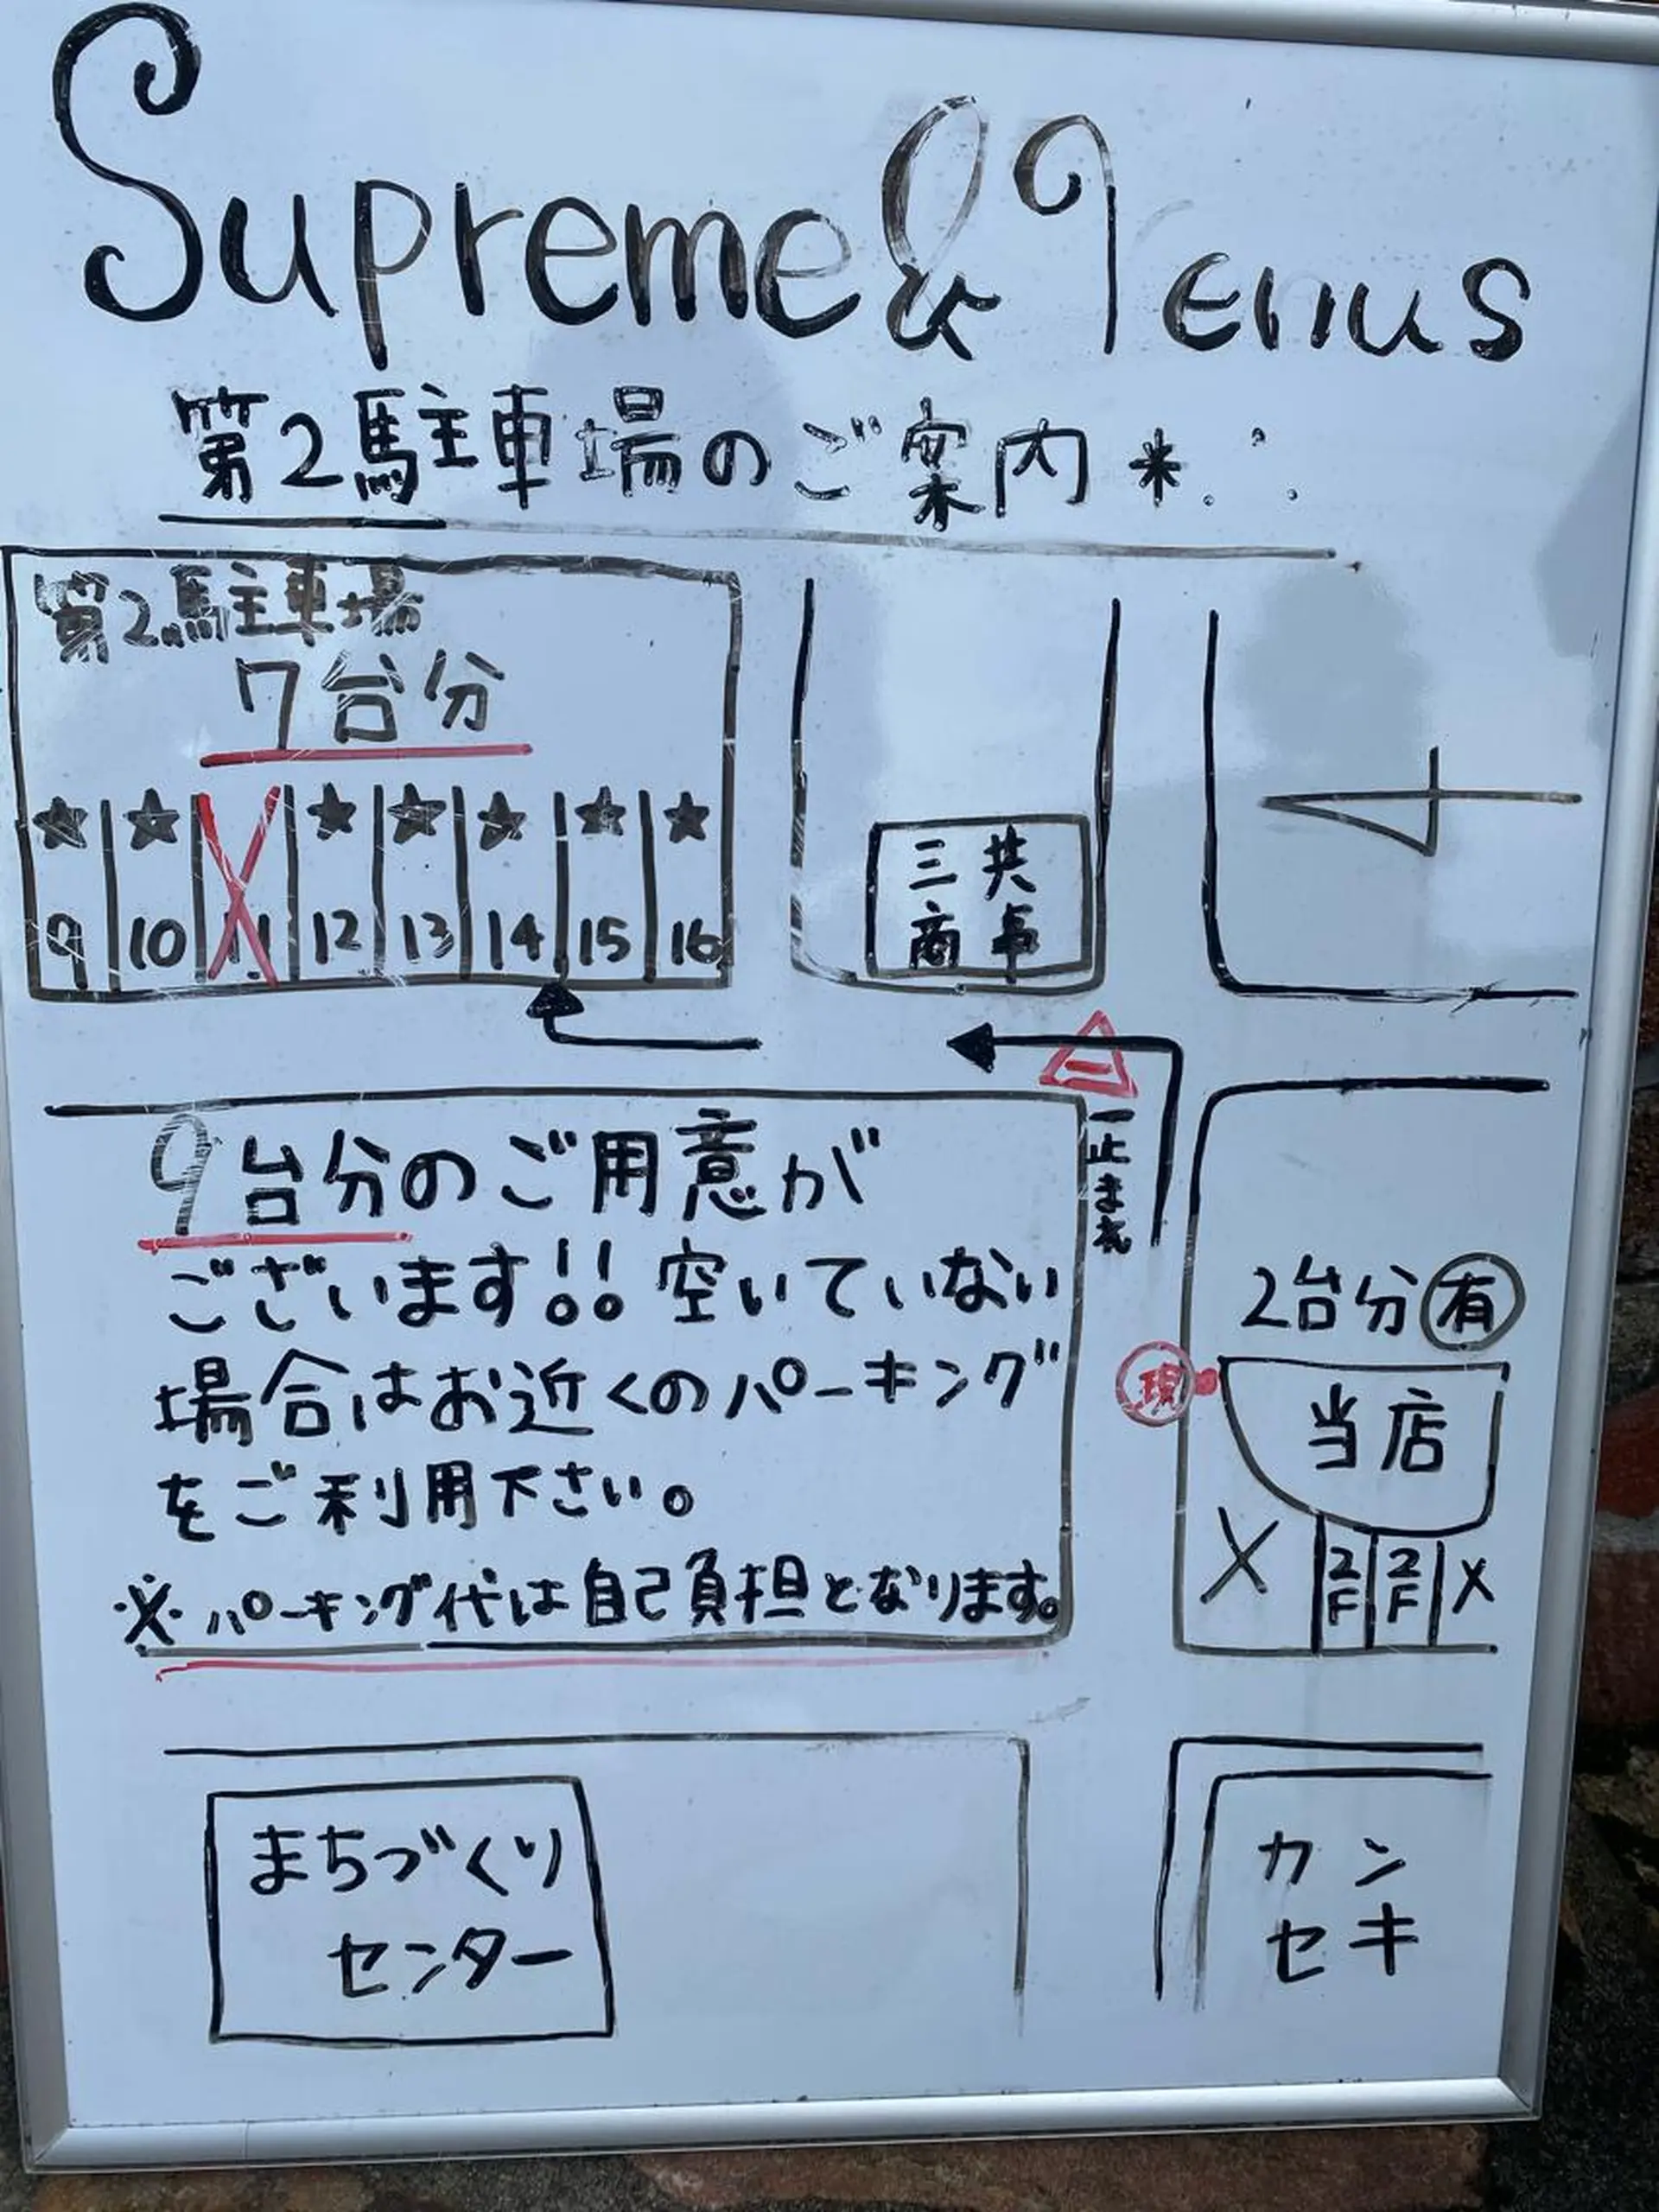 Supreme & Venus
第2駐車場のご案内*
第2駐車場
7台分
★ ★ ★ ★ ★ ★ ★
9 10 11 12 13 14 15 16
三共
商事
止まれ
9台分のご用意が
ございます!! 空いていない
場合はお近くのパーキング
をご利用下さい。
※パーキング代は自己負担となります。
2台分有
現
当店
X 2F 2F X
まちづくり
センター
カン
セキ